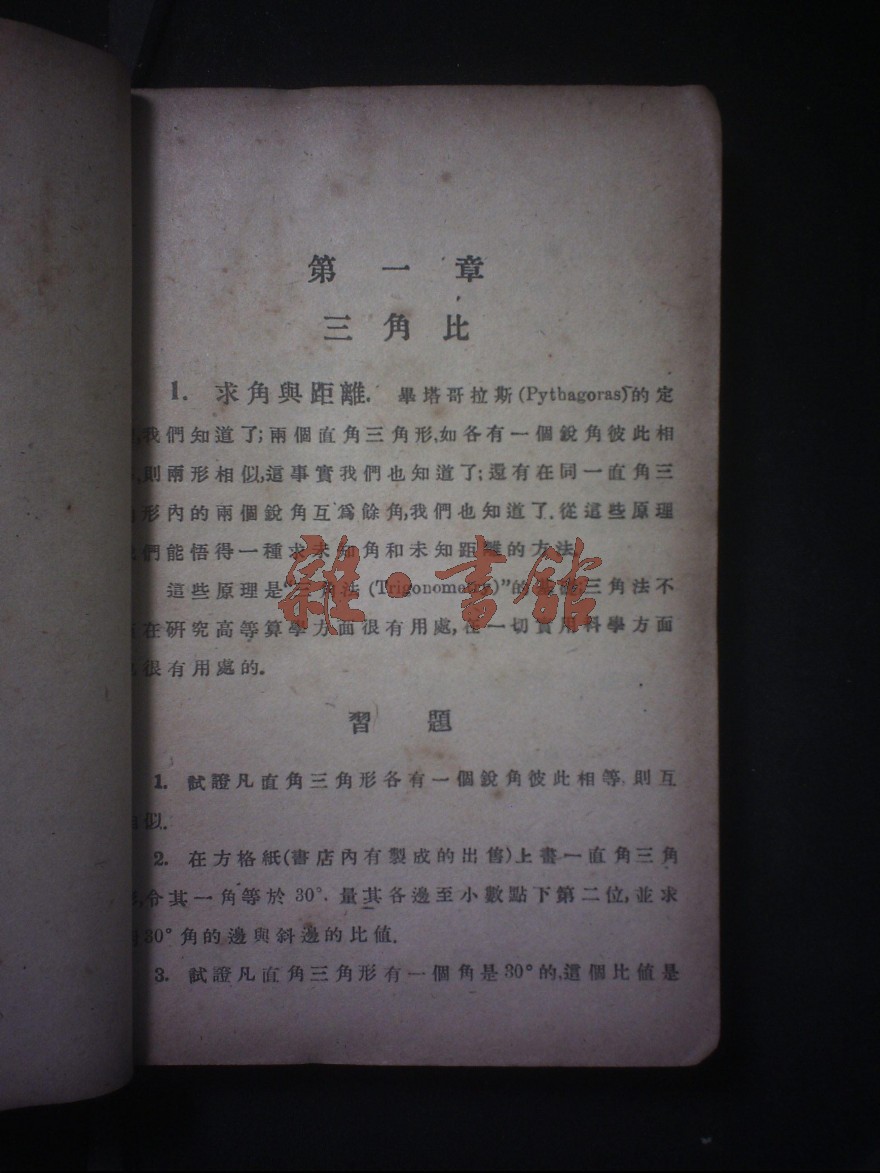 第一章
三角比
1. 求角與距離. 畢塔哥拉斯(Pythagoras)的定
,我們知道了;兩個直角三角形,如各有一個銳角彼此相
,則兩形相似,這事實我們也知道了;還有在同一直角三
形內的兩個銳角互爲餘角,我們也知道了.從這些原理
們能悟得一種求未知角和未知距離的方法.
這些原理是“三角法(Trigonometry)”的 三角法不
在研究高等算學方面很有用處,在一切實用科學方面
很有用處的.
習題
1. 試證凡直角三角形各有一個銳角彼此相等,則互
似.
2. 在方格紙(書店內有製成的出售)上畫一直角三角
,令其一角等於30°.量其各邊至小數點下第二位,並求
30°角的邊與斜邊的比值.
3. 試證凡直角三角形有一個角是30°的,這個比值是
雜·書館